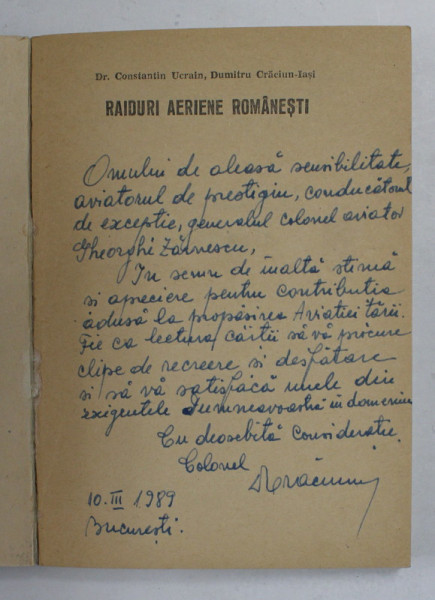 Dr. Constantin Ucrain, Dumitru Crăciun-Iași
RAIDURI AERIENE ROMÂNEȘTI
Omului de aleasă sensibilitate,
aviatorul de prestigiu, conducătorul
de excepție, generalul colonel aviator
Gheorghe Zărnescu,
In semn de inaltă stimă
si apreciere pentru contributia
adusă la propășirea Aviatiei Tării.
Fie ca lectura cărtii să vă procure
clipe de recreere si desfătare
si să vă satisfacă unele din
exigentele dumneavoastră in domeniu
Cu deosebită consideratie.
Colonel
DCrăciun
10. III 1989
București.